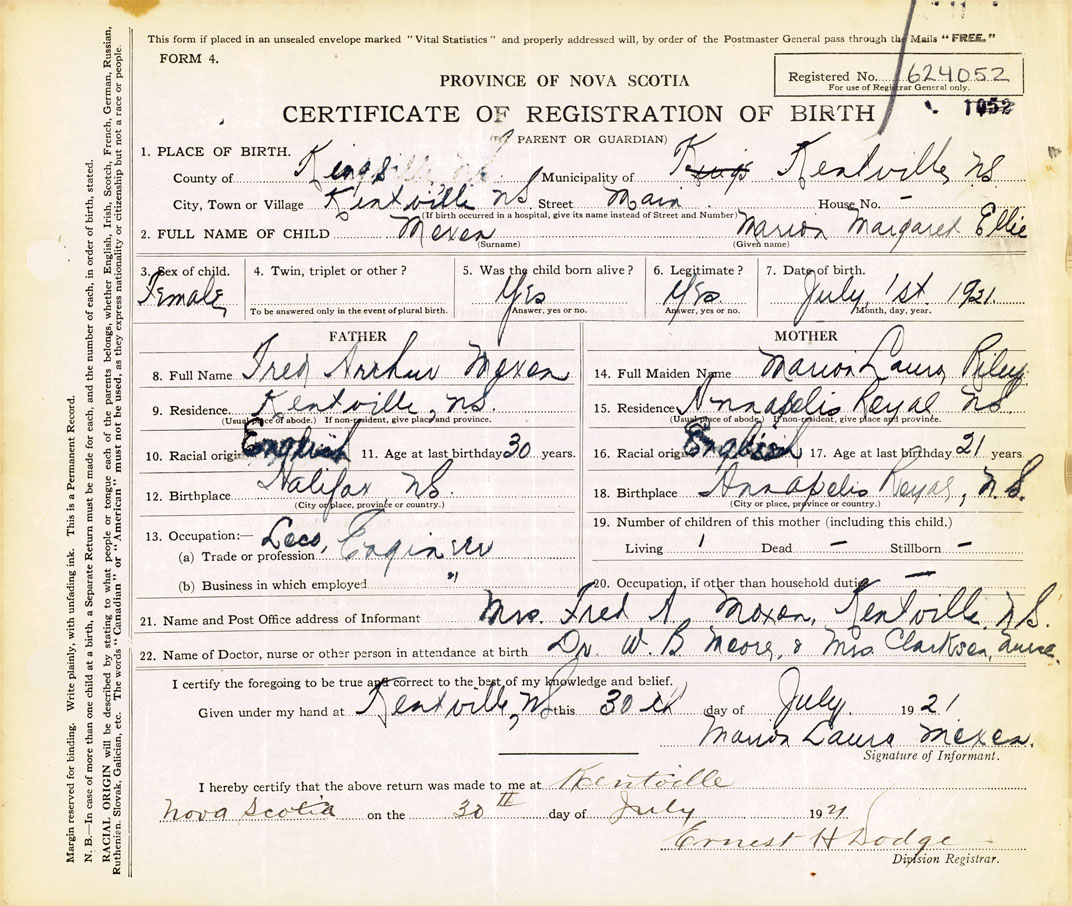 This form if placed in an unsealed envelope marked "Vital Statistics" and properly addressed will, by order of the Postmaster General pass through the Mails "FREE."
FORM 4.
Registered No. 624052
For use of Registrar General only.
PROVINCE OF NOVA SCOTIA
CERTIFICATE OF REGISTRATION OF BIRTH
1952
PARENT OR GUARDIAN)
1. PLACE OF BIRTH.
County of Kings Municipality of Kings Kentville, NS
City, Town or Village Kentville NS. Street Main House No. -
(If birth occurred in a hospital, give its name instead of Street and Number)
2. FULL NAME OF CHILD Moxon Marion Margaret Ellie
(Surname) (Given name)
3. Sex of child. 4. Twin, triplet or other? 5. Was the child born alive? 6. Legitimate? 7. Date of birth.
Female Yes Yes. July 1st. 1921.
To be answered only in the event of plural birth. Answer, yes or no. Answer, yes or no. Month, day, year.
FATHER
8. Full Name Fred Arthur Moxon
9. Residence Kentville, NS.
(Usual place of abode.) If non-resident, give place and province.
10. Racial origin English 11. Age at last birthday 30 years.
12. Birthplace Halifax NS.
(City or place, province or country.)
13. Occupation:—
(a) Trade or profession Loco, Engineer
(b) Business in which employed "
MOTHER
14. Full Maiden Name Marion Laura Riley
15. Residence Annapolis Royal NS
(Usual place of abode.) If non-resident, give place and province.
16. Racial origin English 17. Age at last birthday 21 years
18. Birthplace Annapolis Royal, N.S.
(City or place, province or country.)
19. Number of children of this mother (including this child.)
Living 1 Dead - Stillborn -
20. Occupation, if other than household duties -
21. Name and Post Office address of Informant Mrs. Fred A. Moxon, Kentville, N.S.
22. Name of Doctor, nurse or other person in attendance at birth Dr W. B Moore, & Mrs Clarkson, nurse.
I certify the foregoing to be true and correct to the best of my knowledge and belief.
Given under my hand at Kentville, NS this 30th day of July 1921
Marion Laura Moxon.
Signature of Informant.
I hereby certify that the above return was made to me at Kentville
Nova Scotia on the 30th day of July 1921
Ernest H Dodge
Division Registrar.
Margin reserved for binding. Write plainly, with unfading ink. This is a Permanent Record.
N. B.—In case of more than one child at a birth, a Separate Return must be made for each, and the number of each, in order of birth, stated.
RACIAL ORIGIN will be described by stating to what people or tongue each of the parents belongs, whether English, Irish, Scotch, French, German, Russian,
Ruthenian, Slovak, Galician, etc. The words "Canadian" or "American" must not be used, as they express nationality or citizenship but not a race or people.